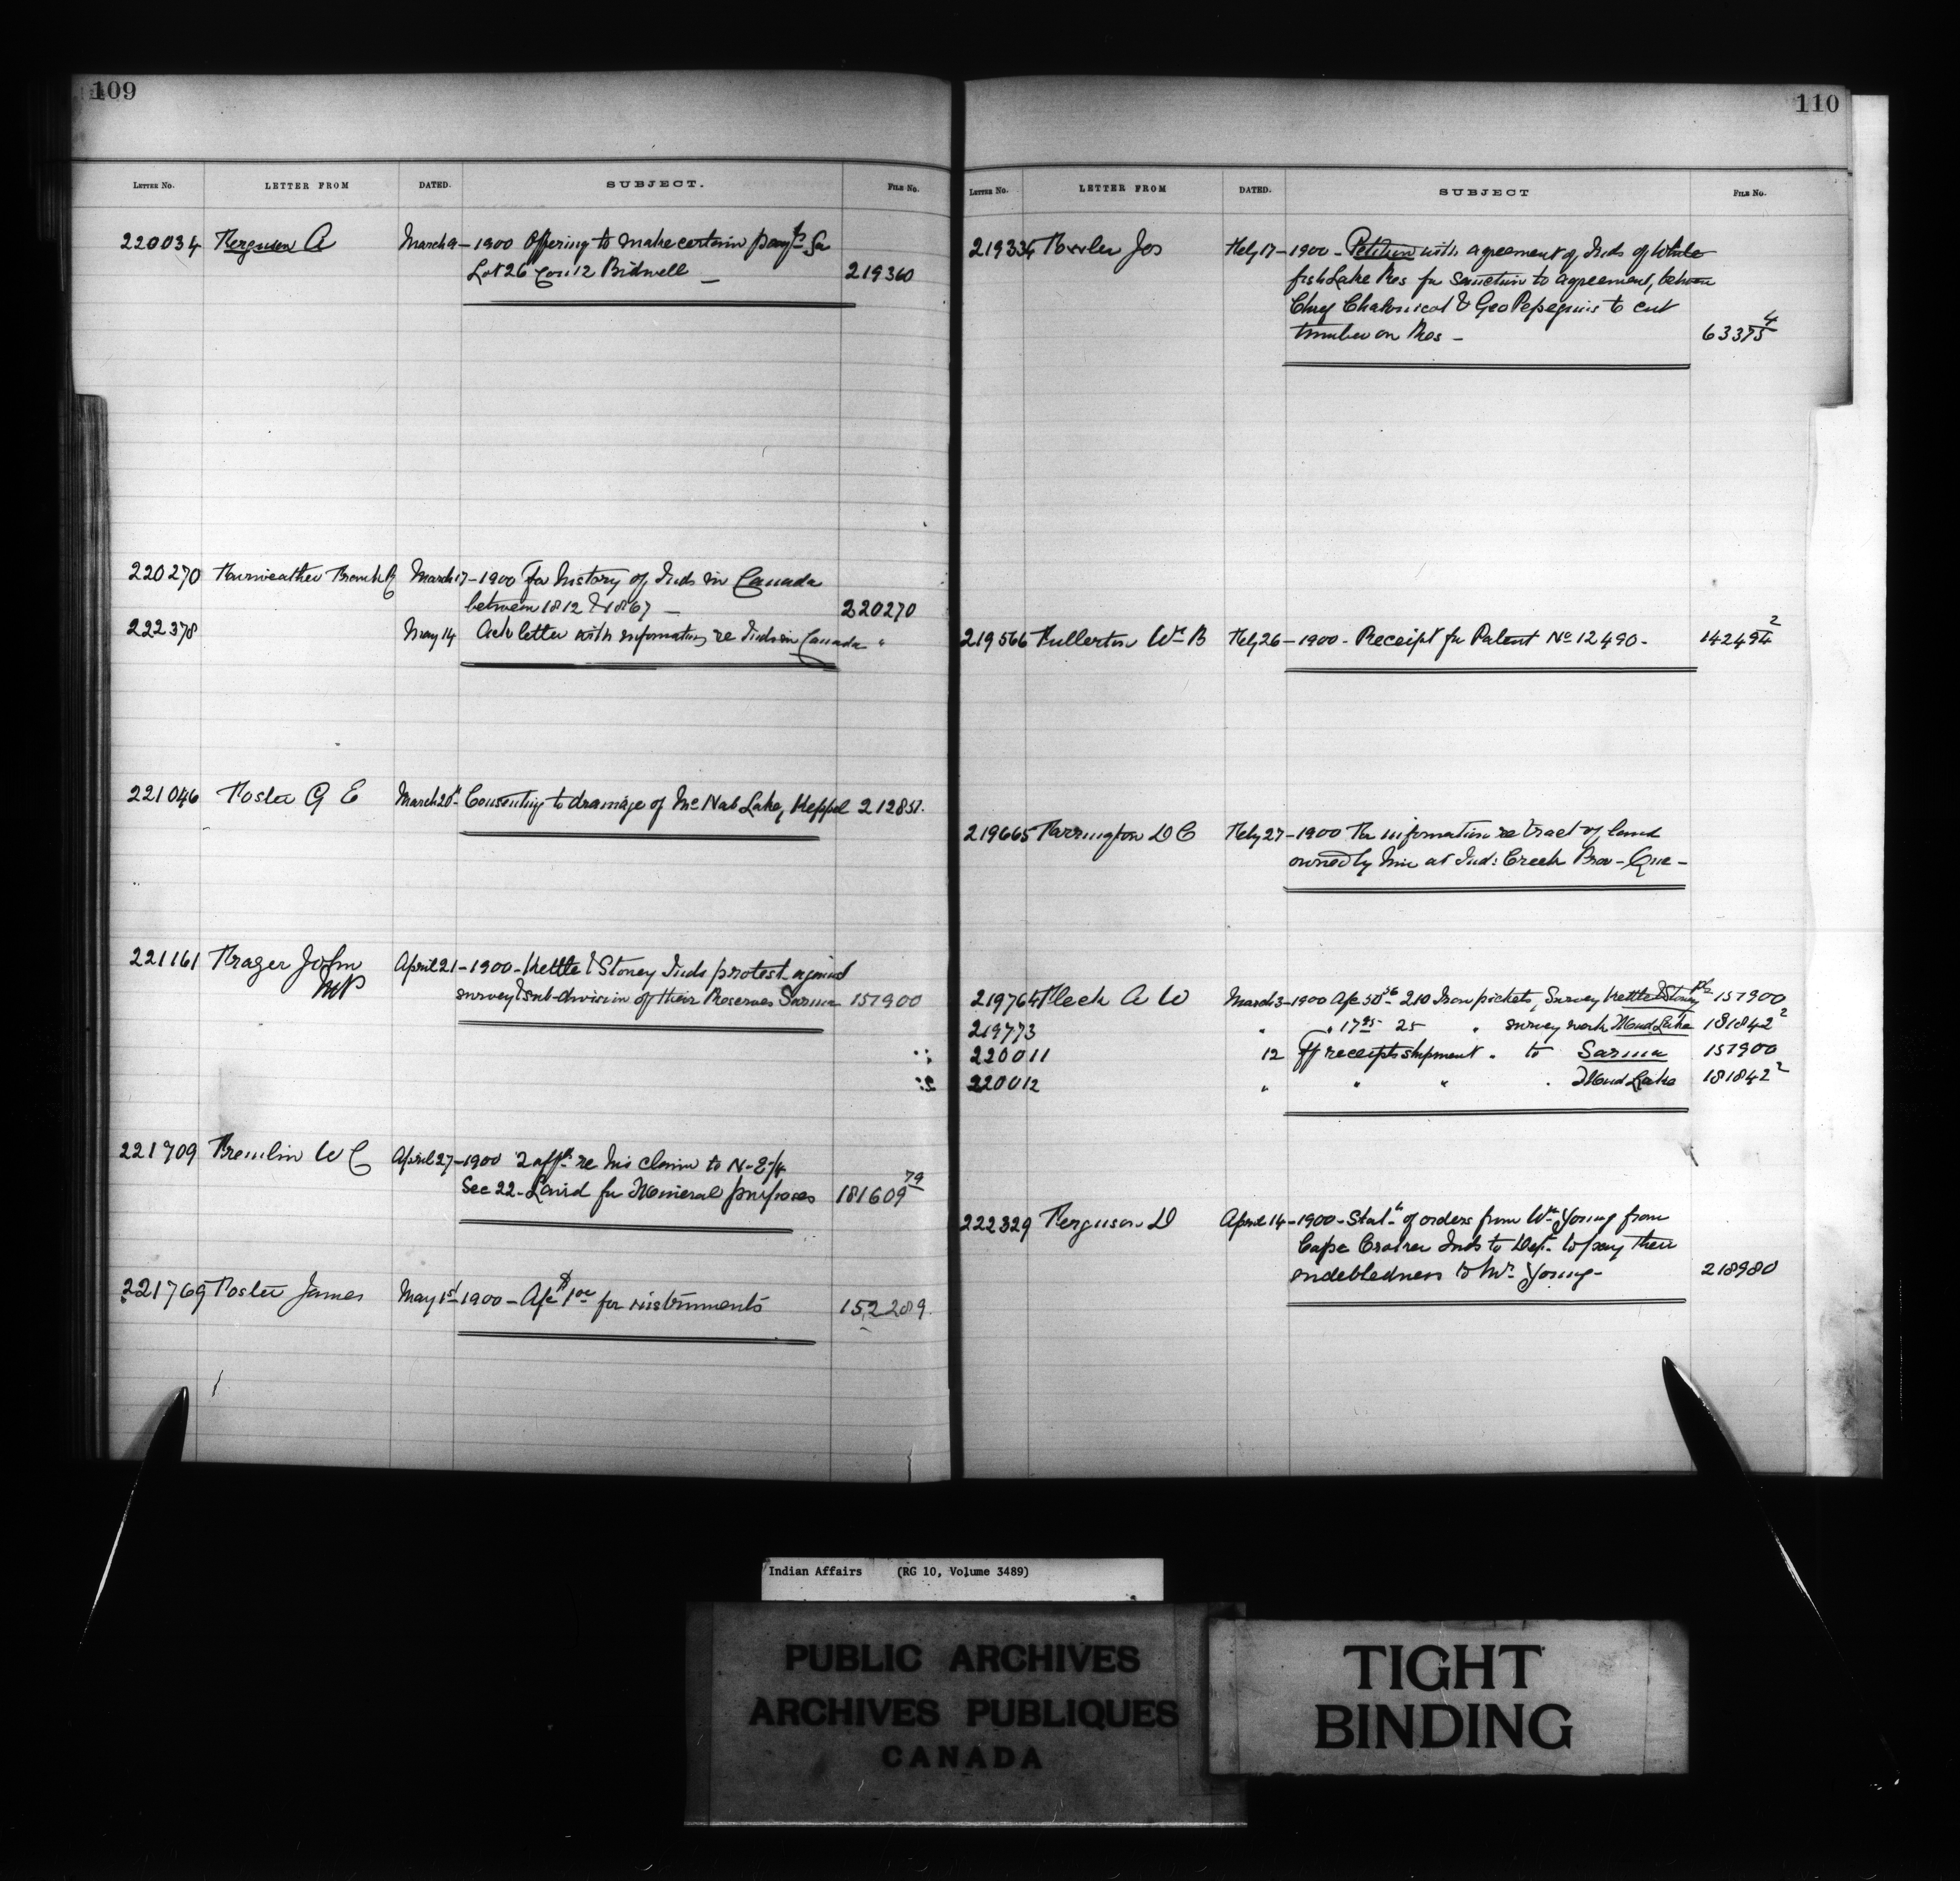 109
LETTER NO. LETTER FROM DATED. SUBJECT. FILE NO.
220034 Ferguson A March 9-1900 Offering to make certain paymts for
Lot 26 Con 12 Bidwell - 219360
220270 Fairweather Frank March 17-1900 For history of Inds in Canada
between 1812 & 1867 - 220270
222378 May 14 Ack letter with information re Inds in Canada "
221046 Foster G E March 20th Consenting to drainage of McNab Lake, Keppel 212851.
221161 Frazer John April 21-1900-Kettle & Stoney Inds protest against
MP survey & sub-division of their Reserves Sarnia 157900
221709 Fremlin W C April 27-1900 2 affts re his claim to N-E-1/4
Sec 22-Laird for Mineral purposes 181609 79
221769 Foster James May 1st 1900-A/c $1 00 for instruments 152289.
110
LETTER NO. LETTER FROM DATED. SUBJECT FILE NO.
219334 Fowler Jos Feby 17-1900-Petition with agreement of Inds of White
fish Lake Res for sanction to agreement, between
Chief & Geo to cut
timber on Res - 63375 4
219566 Fullerton Wm B Feby 26-1900-Receipt for Patent No 12490- 142494 2
219665 Farrington D C Feby 27-1900 For information re tract of land
owned by him at Ind: Creek Prov-Que-
219764 Fleck A W March 3-1900 A/c 50 56 210 Iron pickets, Survey Kettle & Stoney Pt 157900
219773 " " 17 95 25 " survey work Mud Lake 181842 2
220011 12 ff receipts shipment " to Sarnia 157900
220012 " " " " Mud Lake 181842 2
222329 Ferguson D April 14-1900-Statt of orders from Wm Young from
Cape Croker Inds to Dept to pay their
indebtedness to Mr Young- 218980
Indian Affairs (RG 10, Volume 3489)
PUBLIC ARCHIVES
ARCHIVES PUBLIQUES
CANADA
TIGHT
BINDING